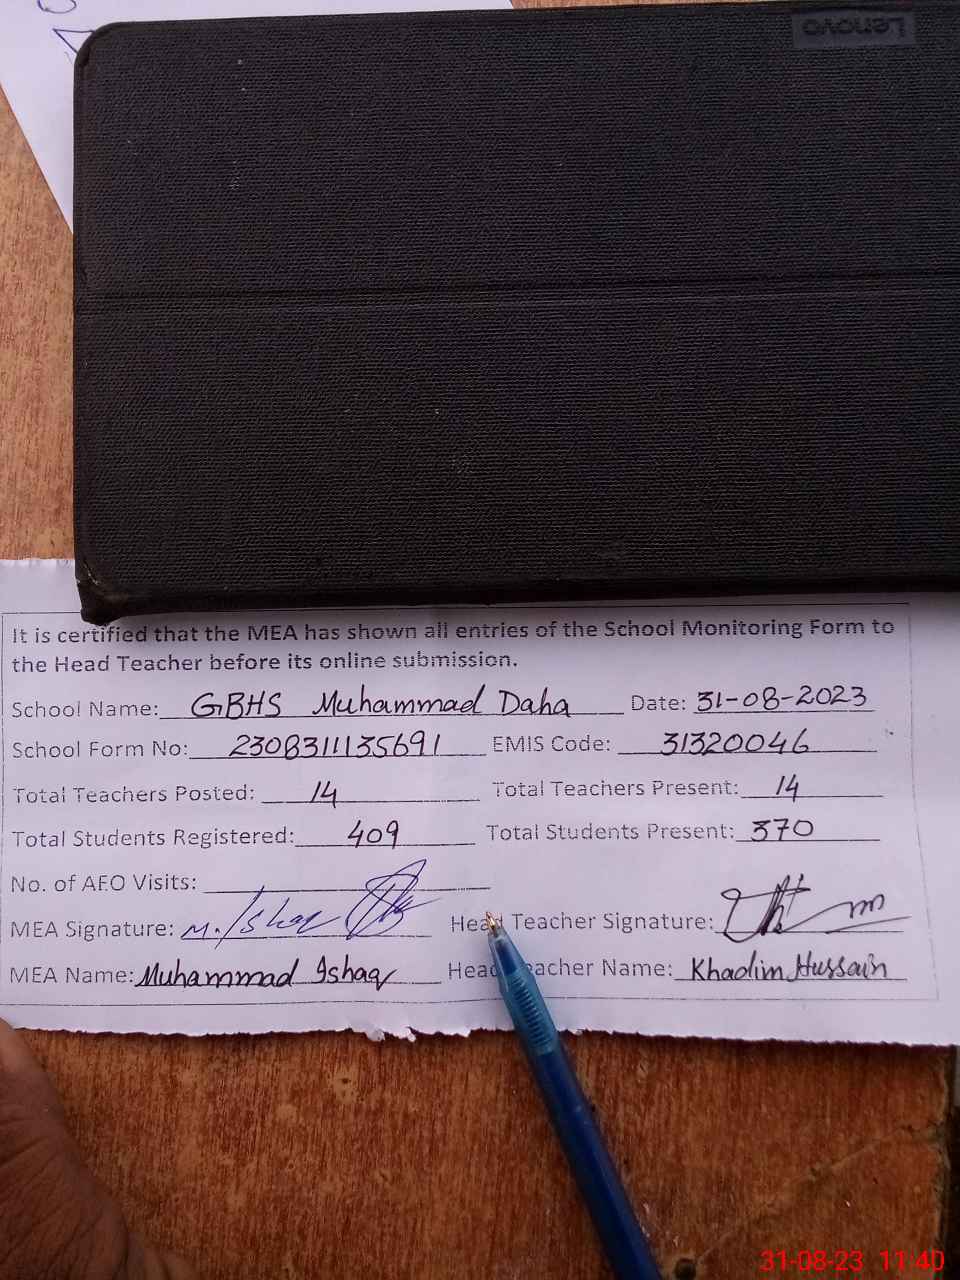 Lenovo
It is certified that the MEA has shown all entries of the School Monitoring Form to
the Head Teacher before its online submission.
School Name: GBHS Muhammad Daha Date: 31-08-2023
School Form No: 2308311135691 EMIS Code: 31320046
Total Teachers Posted: 14 Total Teachers Present: 14
Total Students Registered: 409 Total Students Present: 370
No. of AEO Visits:
MEA Signature: M. Ishaq Head Teacher Signature:
MEA Name: Muhammad Ishaq Head Teacher Name: Khadim Hussain
31-08-23 11:40